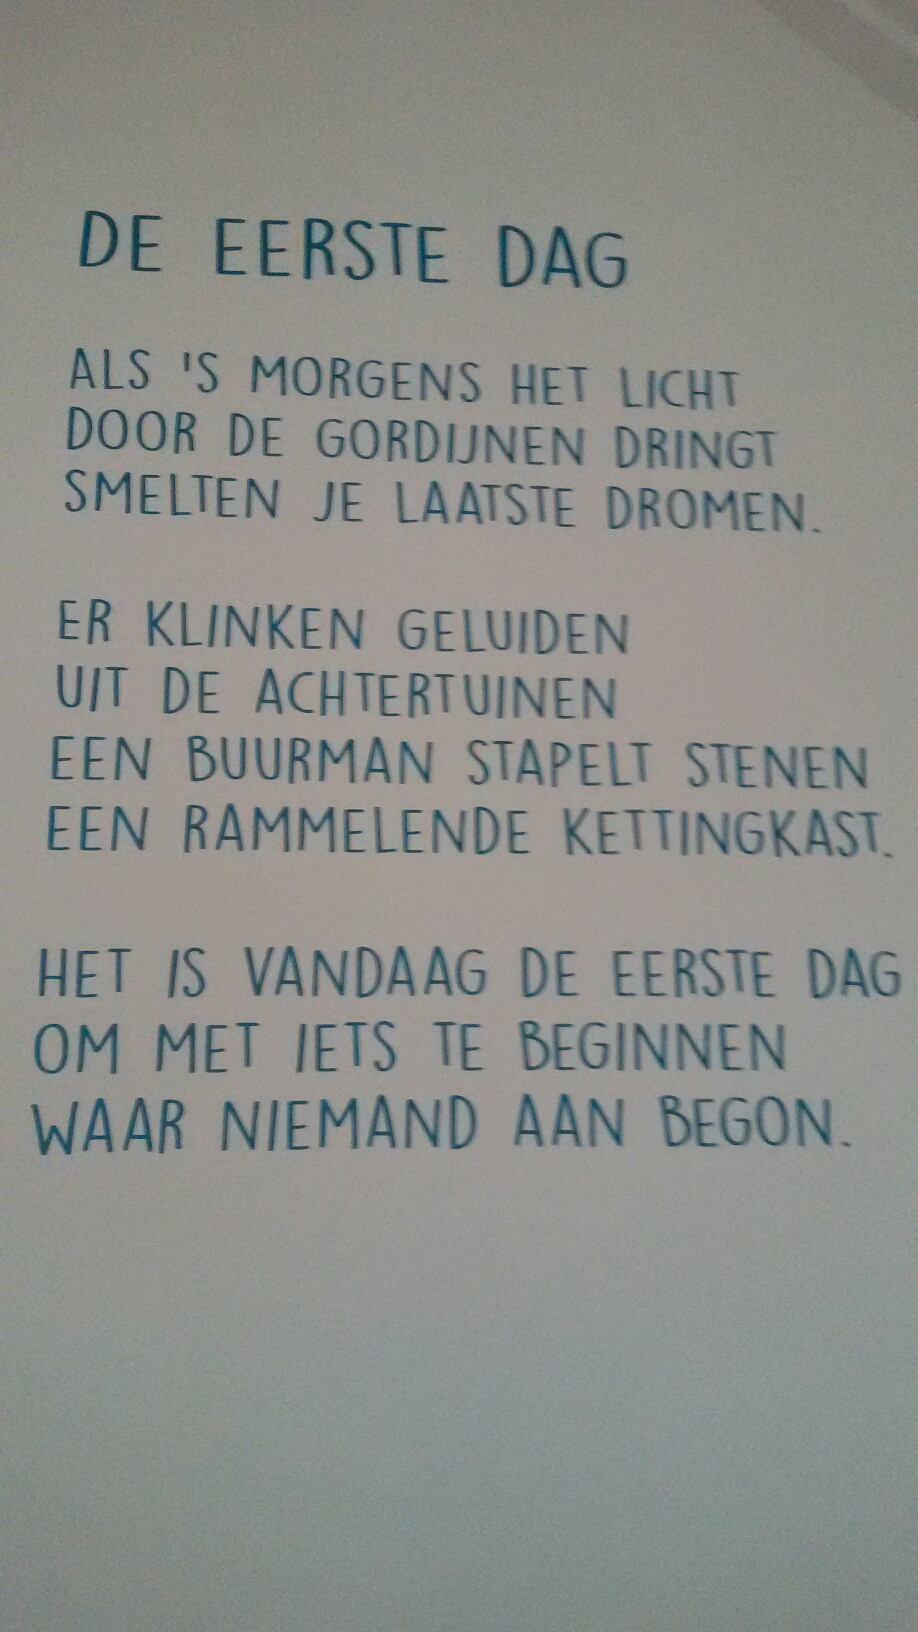 DE EERSTE DAG
ALS 'S MORGENS HET LICHT
DOOR DE GORDIJNEN DRINGT
SMELTEN JE LAATSTE DROMEN.
ER KLINKEN GELUIDEN
UIT DE ACHTERTUINEN
EEN BUURMAN STAPELT STENEN
EEN RAMMELENDE KETTINGKAST.
HET IS VANDAAG DE EERSTE DAG
OM MET IETS TE BEGINNEN
WAAR NIEMAND AAN BEGON.